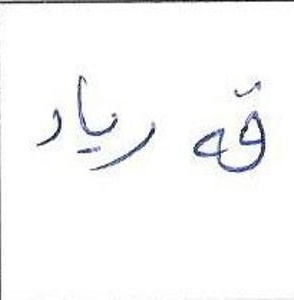 قه رياد